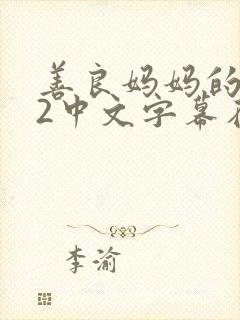 善良妈妈的
2中文字幕
李渝